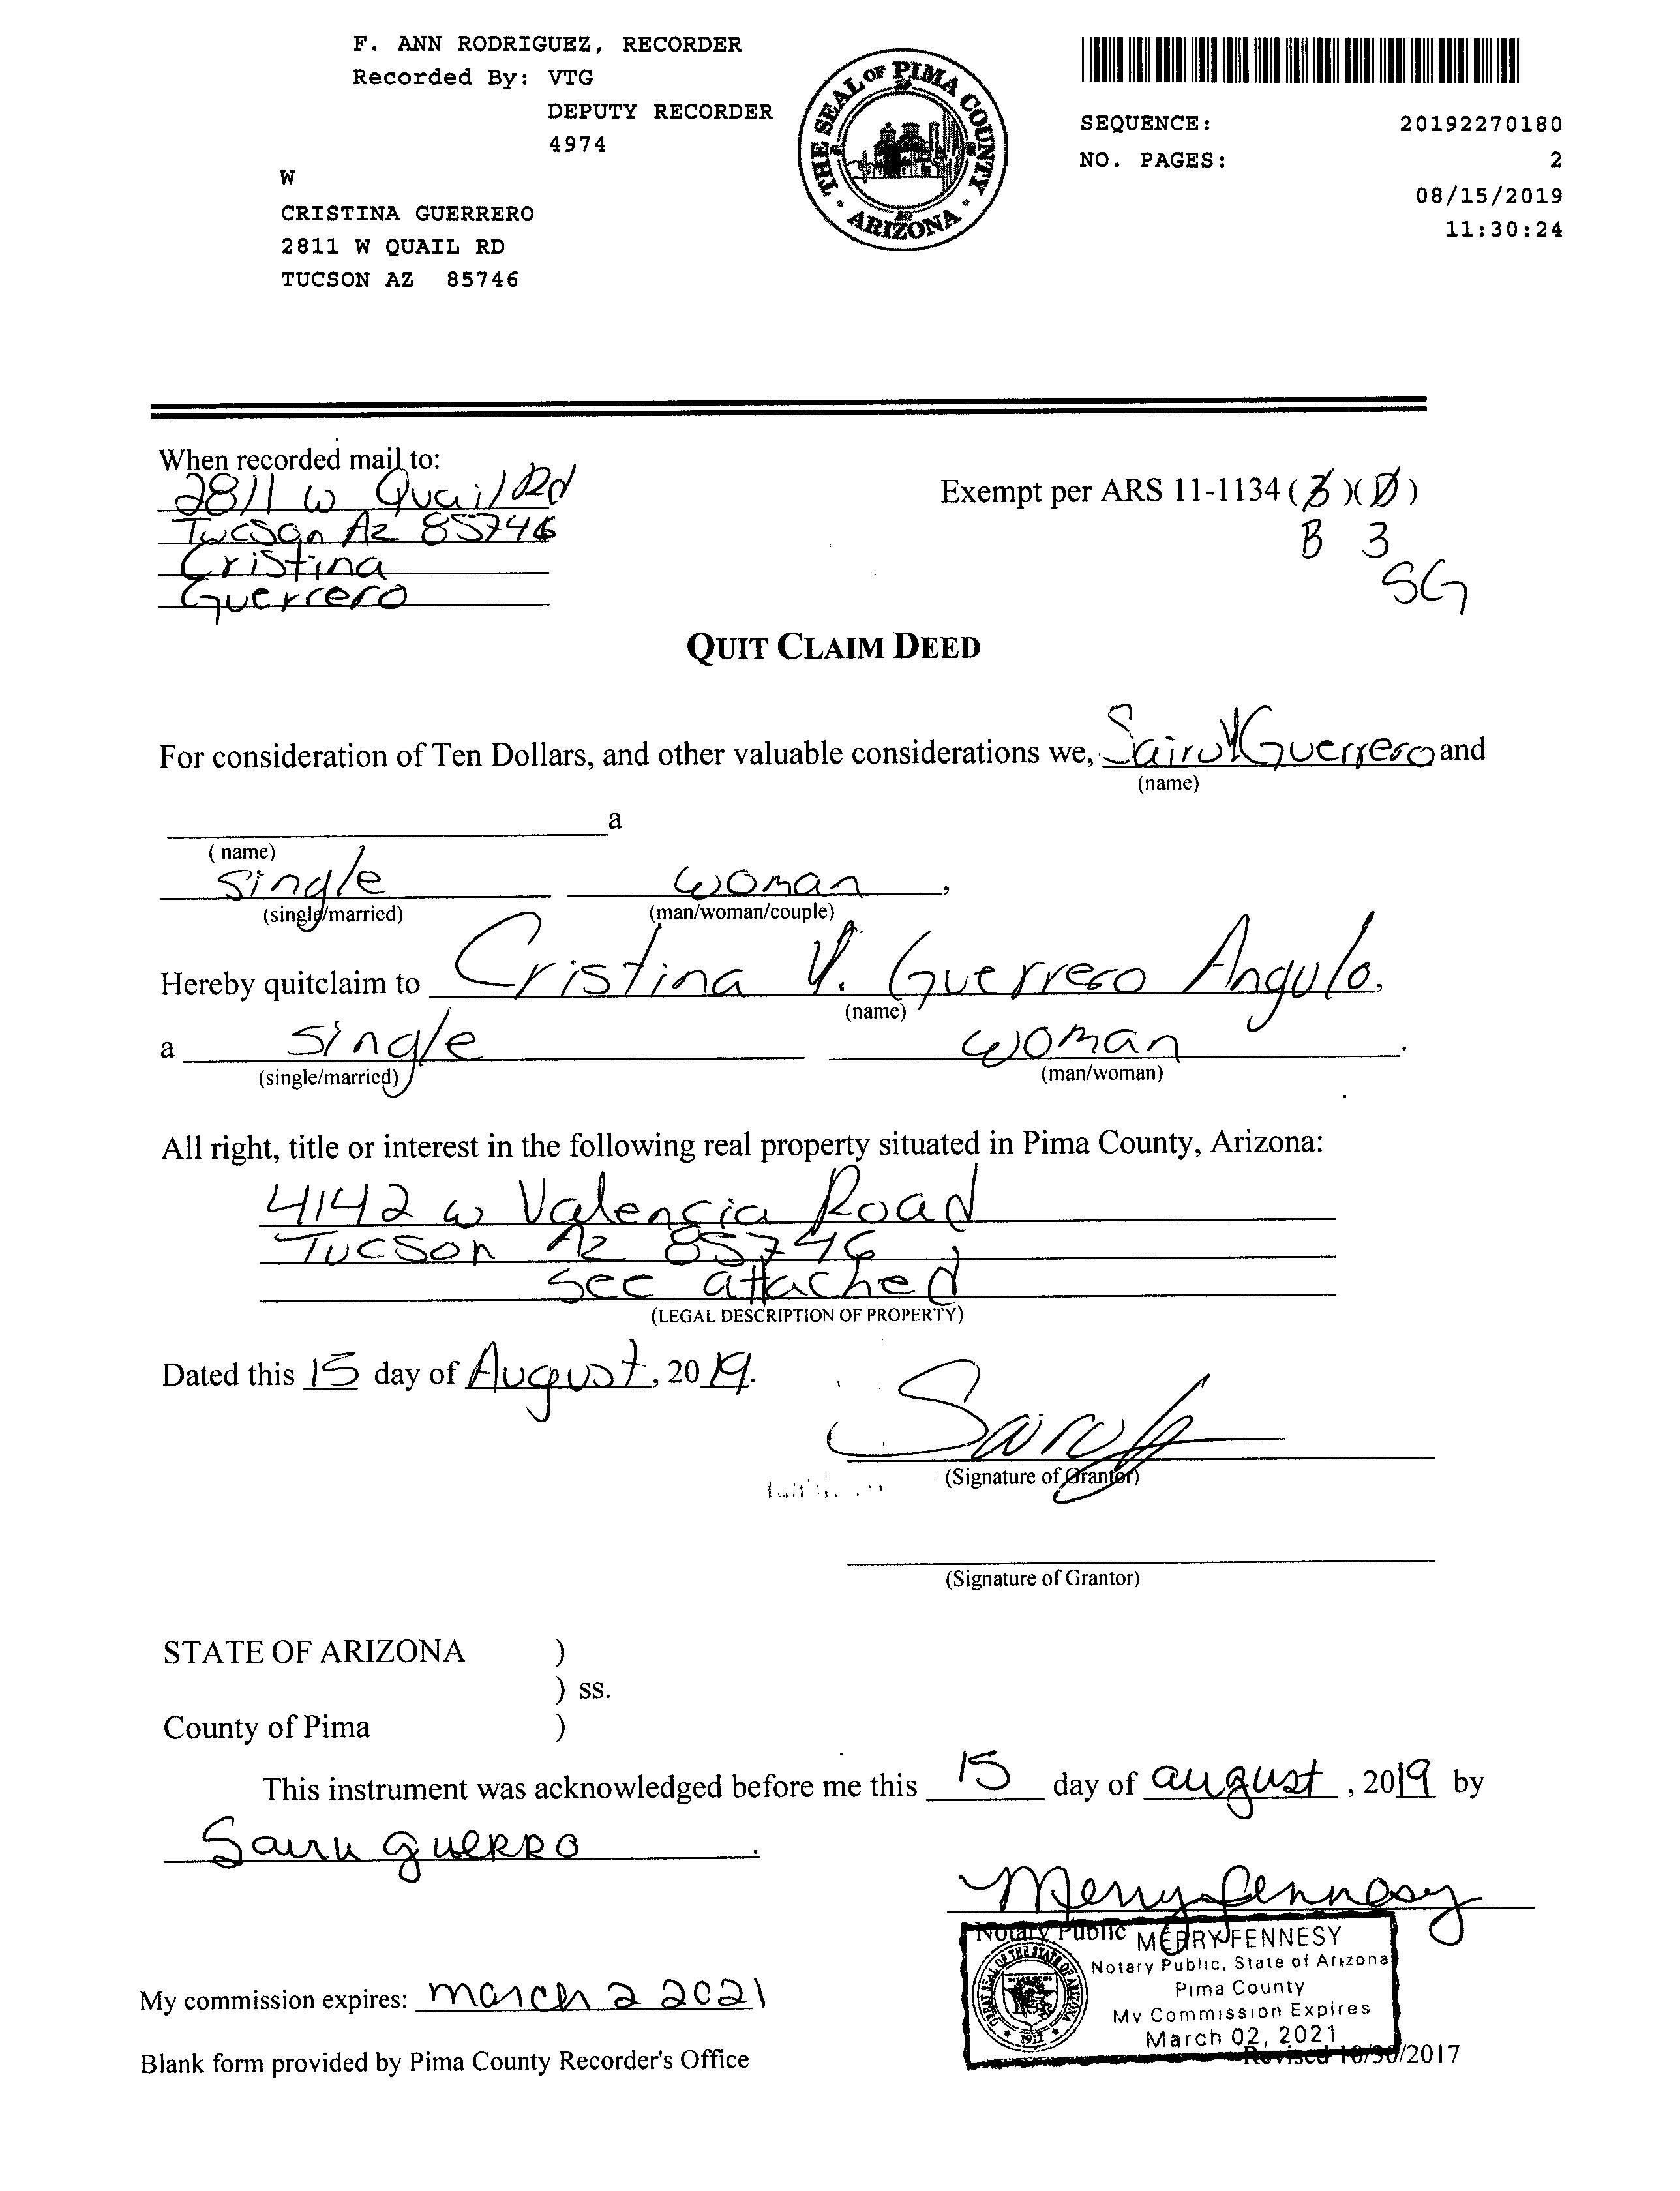 F. ANN RODRIGUEZ, RECORDER
Recorded By: VTG
DEPUTY RECORDER
4974
W
CRISTINA GUERRERO
2811 W QUAIL RD
TUCSON AZ 85746
THE SEAL OF PIMA COUNTY
ARIZONA
SEQUENCE: 20192270180
NO. PAGES: 2
08/15/2019
11:30:24
When recorded mail to:
2811 W Quail Rd
Tucson Az 85746
Cristina
Guerrero
Exempt per ARS 11-1134 ( )( )
B 3
SG
QUIT CLAIM DEED
For consideration of Ten Dollars, and other valuable considerations we, Sairu Guerrero and
(name)
a
( name)
single woman,
(single/married) (man/woman/couple)
Hereby quitclaim to Cristina V. Guerrero Angulo,
(name)
a single woman.
(single/married) (man/woman)
All right, title or interest in the following real property situated in Pima County, Arizona:
4142 w Valencia Road
Tucson Az 85746
see attached
(LEGAL DESCRIPTION OF PROPERTY)
Dated this 15 day of August, 2019.
(Signature of Grantor)
(Signature of Grantor)
STATE OF ARIZONA )
) ss.
County of Pima )
This instrument was acknowledged before me this 15 day of august, 2019 by
Sairu guerro.
Merry Fennesy
Notary Public
MERRY FENNESY
Notary Public, State of Arizona
Pima County
My Commission Expires
March 02, 2021
GREAT SEAL OF THE STATE OF ARIZONA
1912
My commission expires: march 2 2021
Blank form provided by Pima County Recorder's Office
Revised 10/30/2017